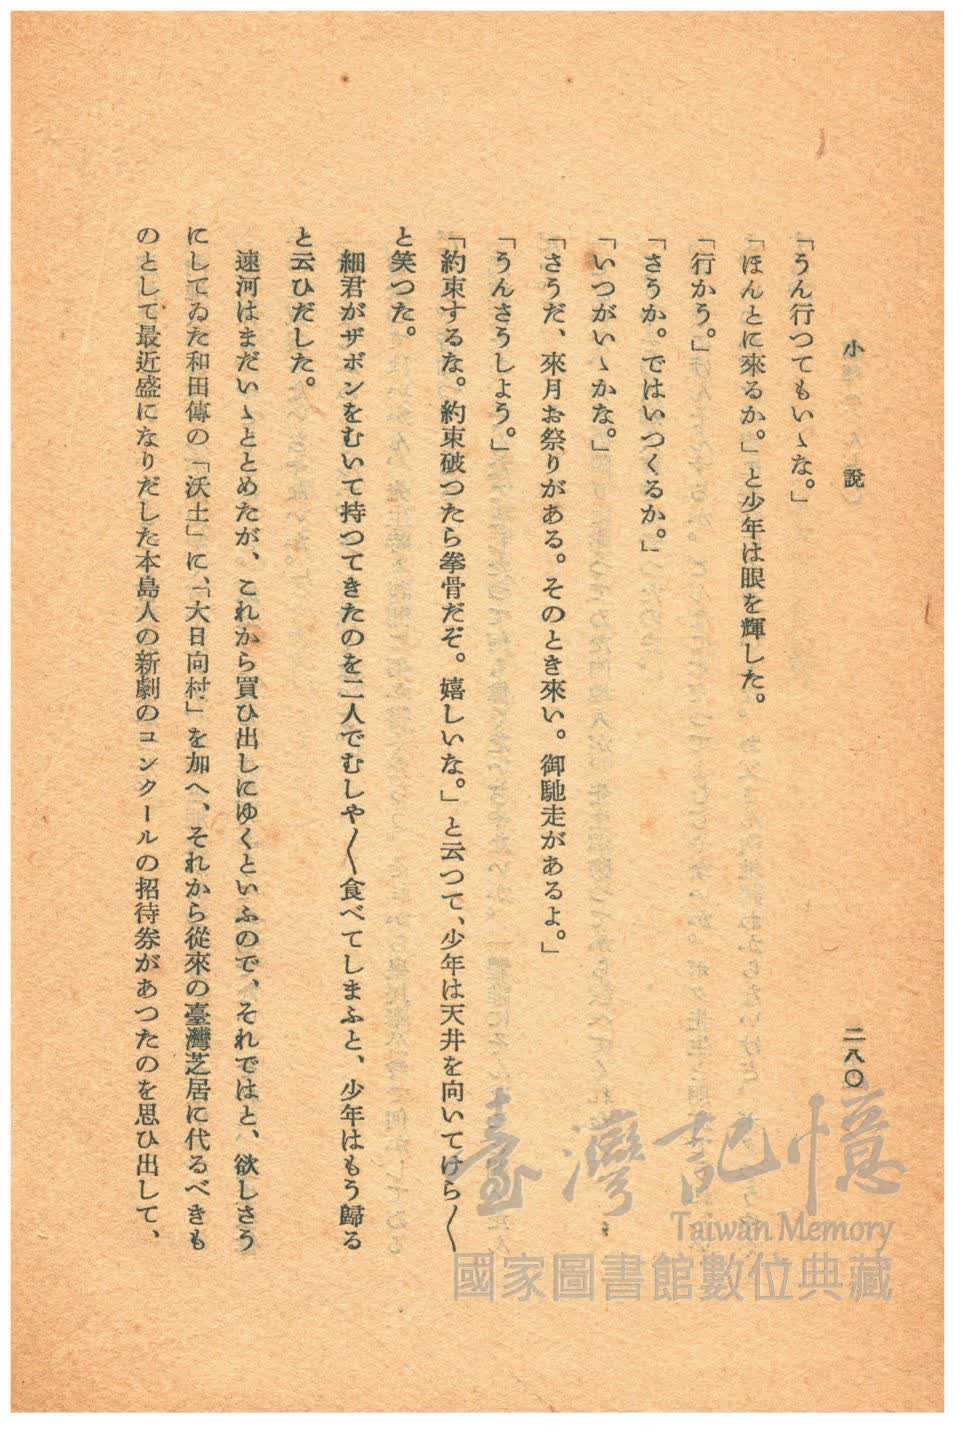 小說
二八〇
「うん行つてもいゝな。」
「ほんとに來るか。」と少年は眼を輝した。
「行かう。」
「さうか。ではいつくるか。」
「いつがいゝかな。」
「さうだ、來月お祭りがある。そのとき來い。御馳走があるよ。」
「うんさうしよう。」
「約束するな。約束破つたら拳骨だぞ。嬉しいな。」と云つて、少年は天井を向いてけら〳〵
と笑つた。
細君がザボンをむいて持つてきたのを二人でむしや〳〵食べてしまふと、少年はもう歸る
と云ひだした。
速河はまだいゝととめたが、これから買ひ出しにゆくといふので、それではと、欲しさう
にしてゐた和田傳の「沃土」に、「大日向村」を加へ、それから從來の臺灣芝居に代るべきも
のとして最近盛になりだした本島人の新劇のコンクールの招待券があつたのを思ひ出して、
臺灣記憶
Taiwan Memory
國家圖書館數位典藏